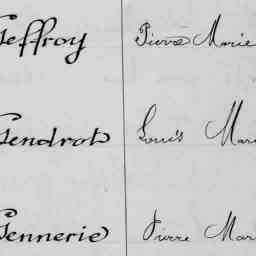 Geffroy Pierre Marie
Gendrot Louis Mari
Gennerie Pierre Mar